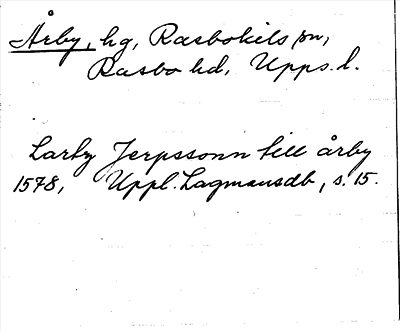 Årby, hg, Rasbokils sn,
Rasbo hd, Upps. l.
Larby Jerpssonn till årby
1578, Uppl. Lagmansdb, s. 15.